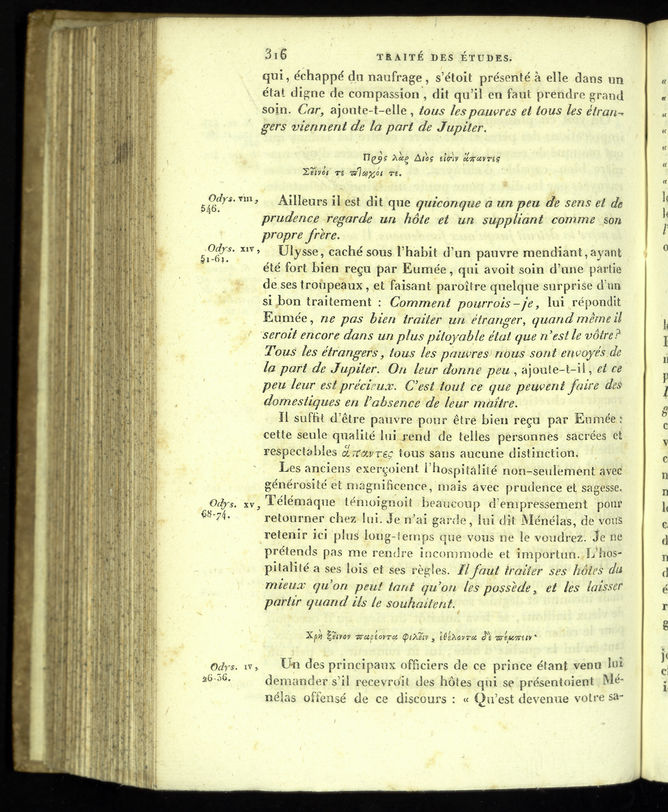 316 TRAITÉ DES ÉTUDES.
qui, échappé du naufrage, s'étoit présenté à elle dans un
état digne de compassion, dit qu'il en faut prendre grand
soin. Car, ajoute-t-elle, tous les pauvres et tous les étran-
gers viennent de la part de Jupiter.
Πρὸς γὰρ Διός εἰσιν ἅπαντες
Ξεῖνοί τε πτωχοί τε.
Odys. VIII, 546. Ailleurs il est dit que quiconque a un peu de sens et de
prudence regarde un hôte et un suppliant comme son
propre frère.
Odys. XIV, 51-61. Ulysse, caché sous l'habit d'un pauvre mendiant, ayant
été fort bien reçu par Eumée, qui avoit soin d'une partie
de ses troupeaux, et faisant paroître quelque surprise d'un
si bon traitement : Comment pourrois-je, lui répondit
Eumée, ne pas bien traiter un étranger, quand même il
seroit encore dans un plus pitoyable état que n'est le vôtre?
Tous les étrangers, tous les pauvres nous sont envoyés de
la part de Jupiter. On leur donne peu, ajoute-t-il, et ce
peu leur est précieux. C'est tout ce que peuvent faire des
domestiques en l'absence de leur maître.
Il suffit d'être pauvre pour être bien reçu par Eumée :
cette seule qualité lui rend de telles personnes sacrées et
respectables ἅπαντες tous sans aucune distinction.
Les anciens exerçoient l'hospitalité non-seulement avec
générosité et magnificence, mais avec prudence et sagesse.
Odys. XV, 68-74. Télémaque témoignoit beaucoup d'empressement pour
retourner chez lui. Je n'ai garde, lui dit Ménélas, de vous
retenir ici plus long-temps que vous ne le voudrez. Je ne
prétends pas me rendre incommode et importun. L'hos-
pitalité a ses lois et ses règles. Il faut traiter ses hôtes du
mieux qu'on peut tant qu'on les possède, et les laisser
partir quand ils le souhaitent.
Χρὴ ξεῖνον παρέοντα φιλεῖν, ἐθέλοντα δὲ πέμπειν·
Odys. IV, 26-36. Un des principaux officiers de ce prince étant venu lui
demander s'il recevroit des hôtes qui se présentoient Mé-
nélas offensé de ce discours : « Qu'est devenue votre sa-